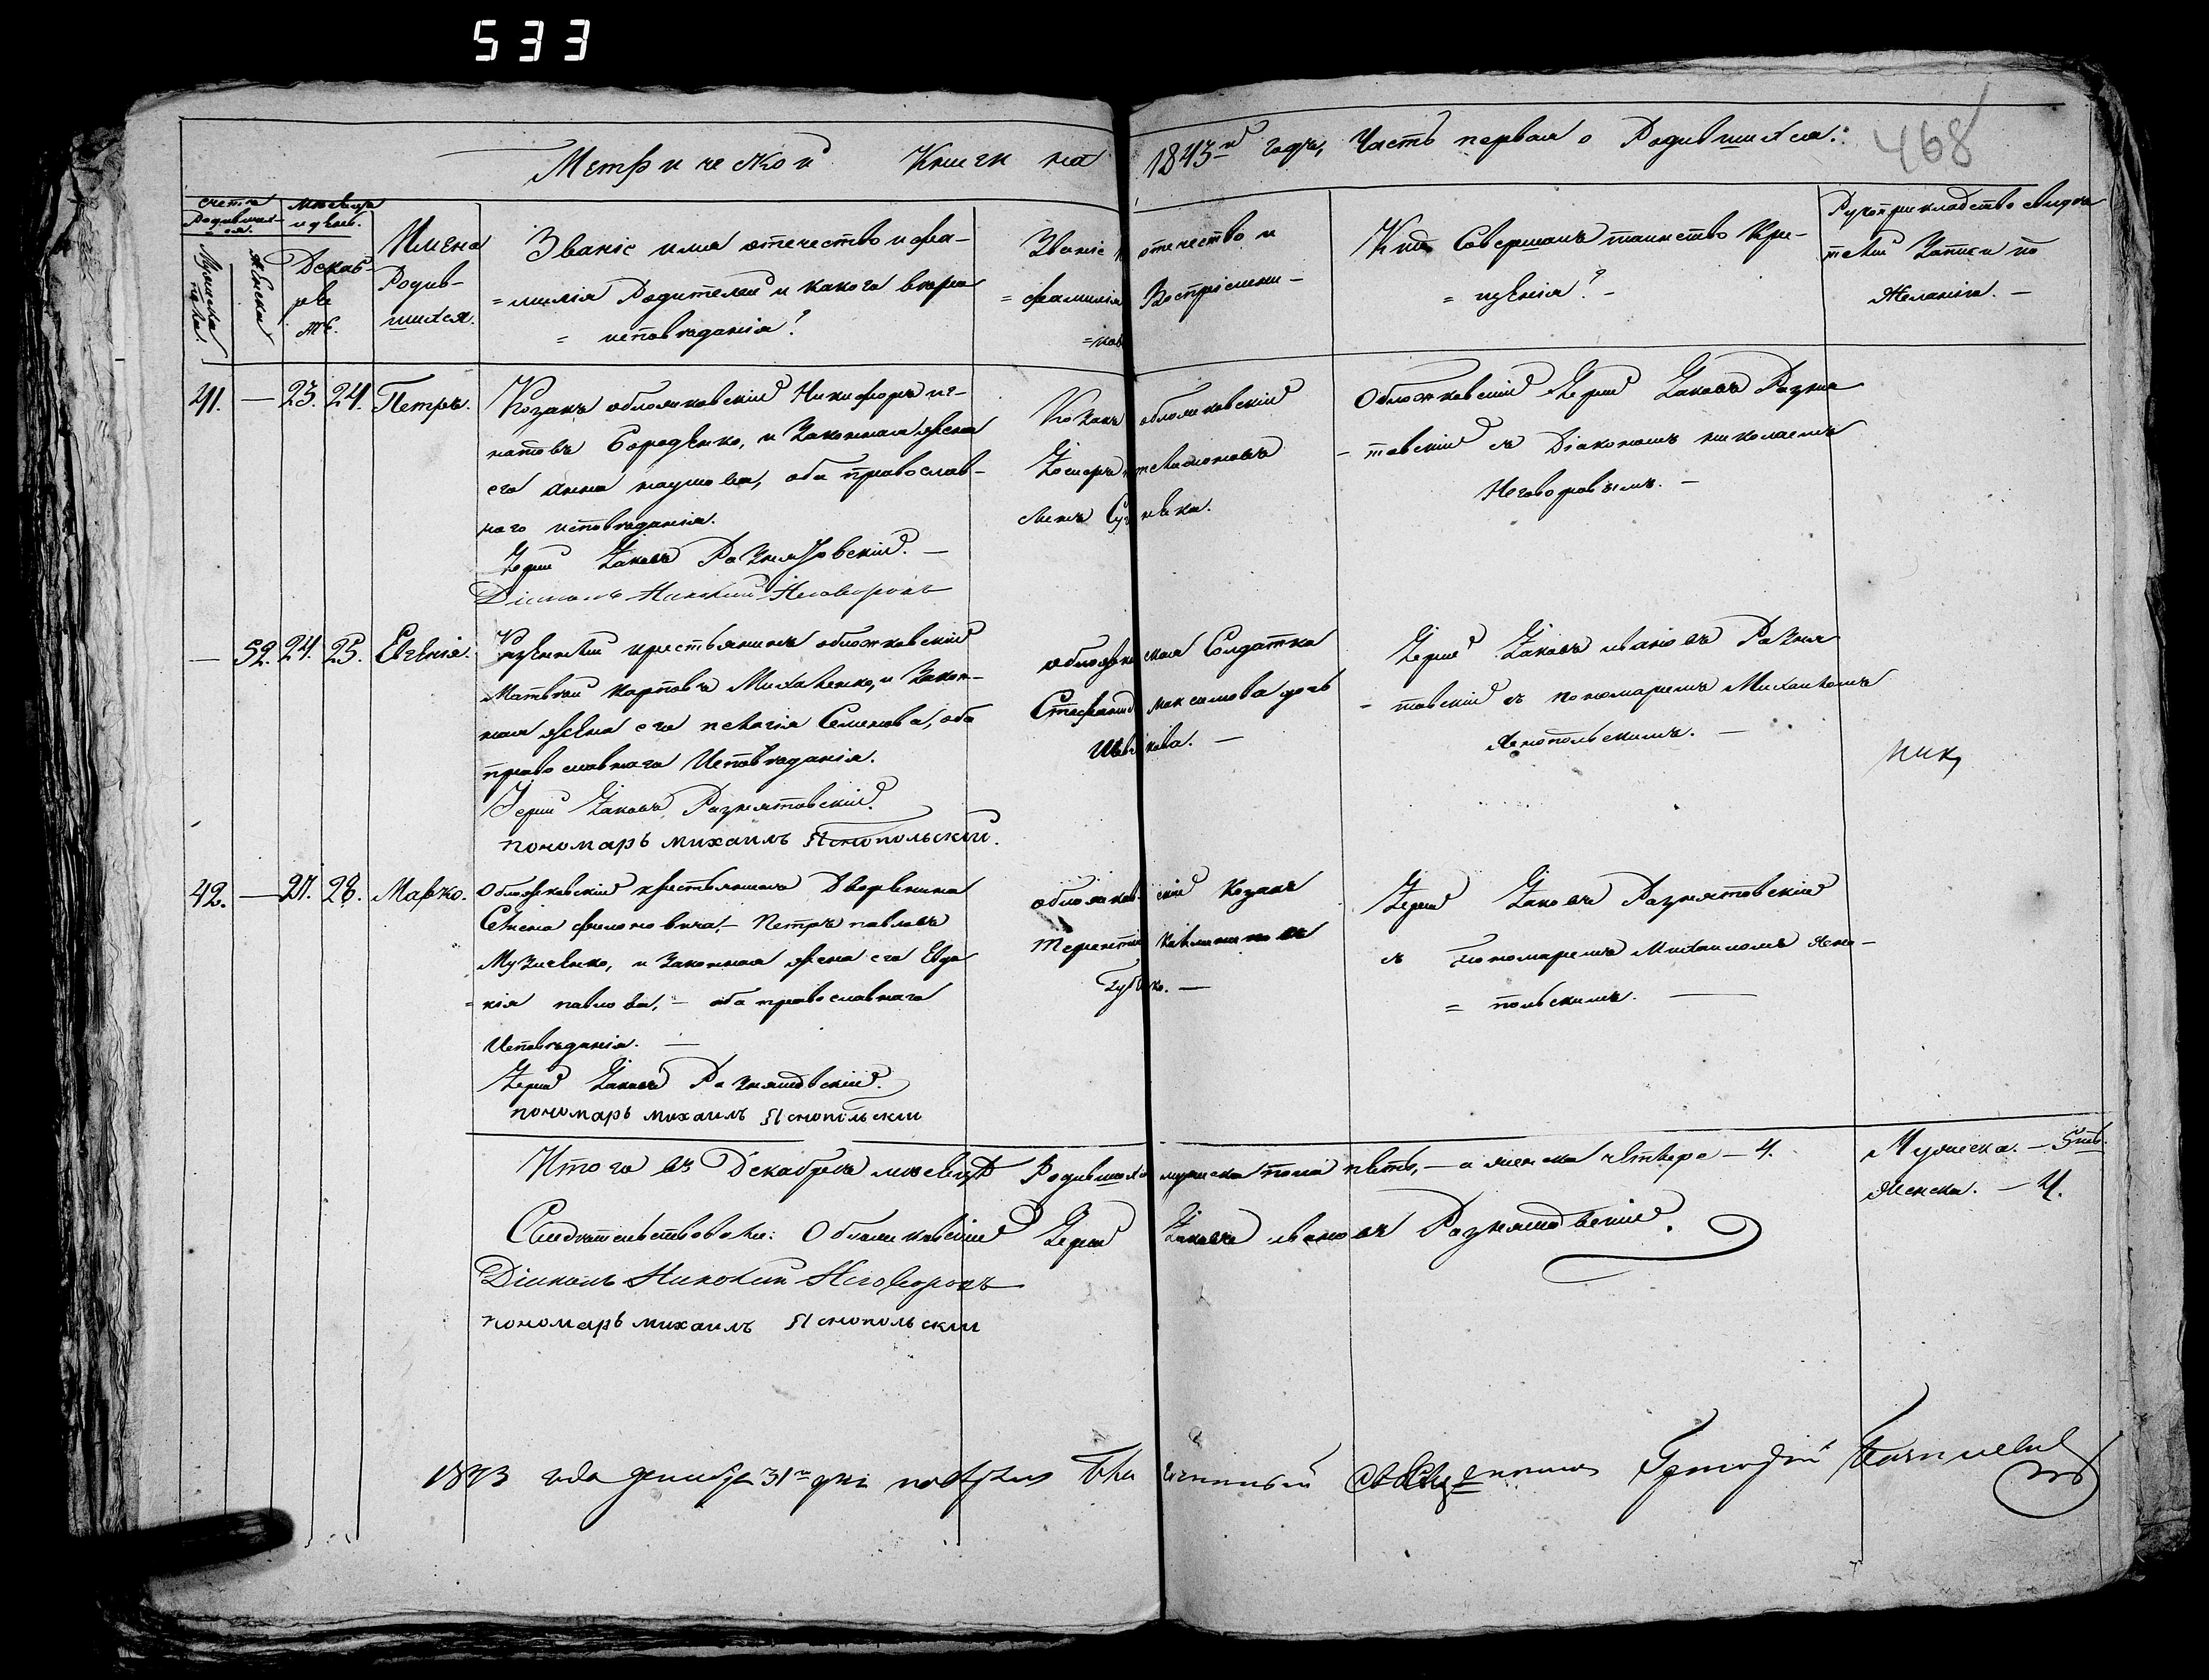 533
Метрической Книги на 1843-й годъ, Часть первая о Родившихся:
468
счетъ Родивших-ся.
Мужеска пола.
Женска
месяца и день.
Декаб-рь
Имена Родив-шихся.
Званіе имя отечество и фа-
=милія Родителей и какога вѣро
= исповѣданія?
Званіе отечество и
= фамилія Воспріемни-
=ковъ
Кто Совершалъ таинство Кре-
= щенія? -
Рукоприкладство свидѣ
телей Записи по
Желанію. —
41. — 23. 24. Петръ.
Козакъ обложковскій Никифоръ иг-
натовъ Бороденко, и Законная жена
его Анна наумова, оба православ-
наго исповѣданія.
Іерей Іаковъ Разнятовскій. —
Діаконъ Николай Неговоровъ
Козакъ обложковскій
Обложковскій Іерей Іаковъ Разня
- товскій съ Діакономъ николаемъ
Неговоровымъ. —
— 52. 24. 25. Евгенія.
крестьянинъ обложковскій
Матвѣй Карповъ Михаленко, и Закон-
ная жена его пелагія Семенова, оба
православнаго Исповѣданія.
Іерей Іаковъ Разнятовскій.
пономарь михаилъ Яснопольскій.
обложковская Солдатка
Стефанида максимова дочь
Шевчкова. —
Іерей Іаковъ ивановъ Разня
- товскій съ пономаремъ Михаиломъ
Яснопольскимъ. —
42. — 27. 28. Марко.
Обложковскій крестьянинъ Дворянина
Семена филоновича, — Петръ павловъ
Музиченко, и Законная жена его Евдо
= кія павлова, — оба православнаго
Исповѣданія. —
Іерей Іаковъ Разнятовскій.
пономарь михаилъ Яснопольскій
обложковскій Козакъ
Терентій
Іерей Іаковъ Разнятовскій
съ Пономаремъ Михаиломъ Ясно-
= польскимъ. —
Итого въ Декабрѣ месяцѣ Родившихся мужеска пола пять, — а женска четверо — 4.
Мужеска. — 5ть.
Женска. — 4.
Свидѣтельствовали: Обложковскій Іерей Іаковъ ивановъ Разнятовскій.
Діаконъ Николай Неговоровъ
пономарь михаилъ Яснопольскій
1843 года декабря 31го дня Священникъ